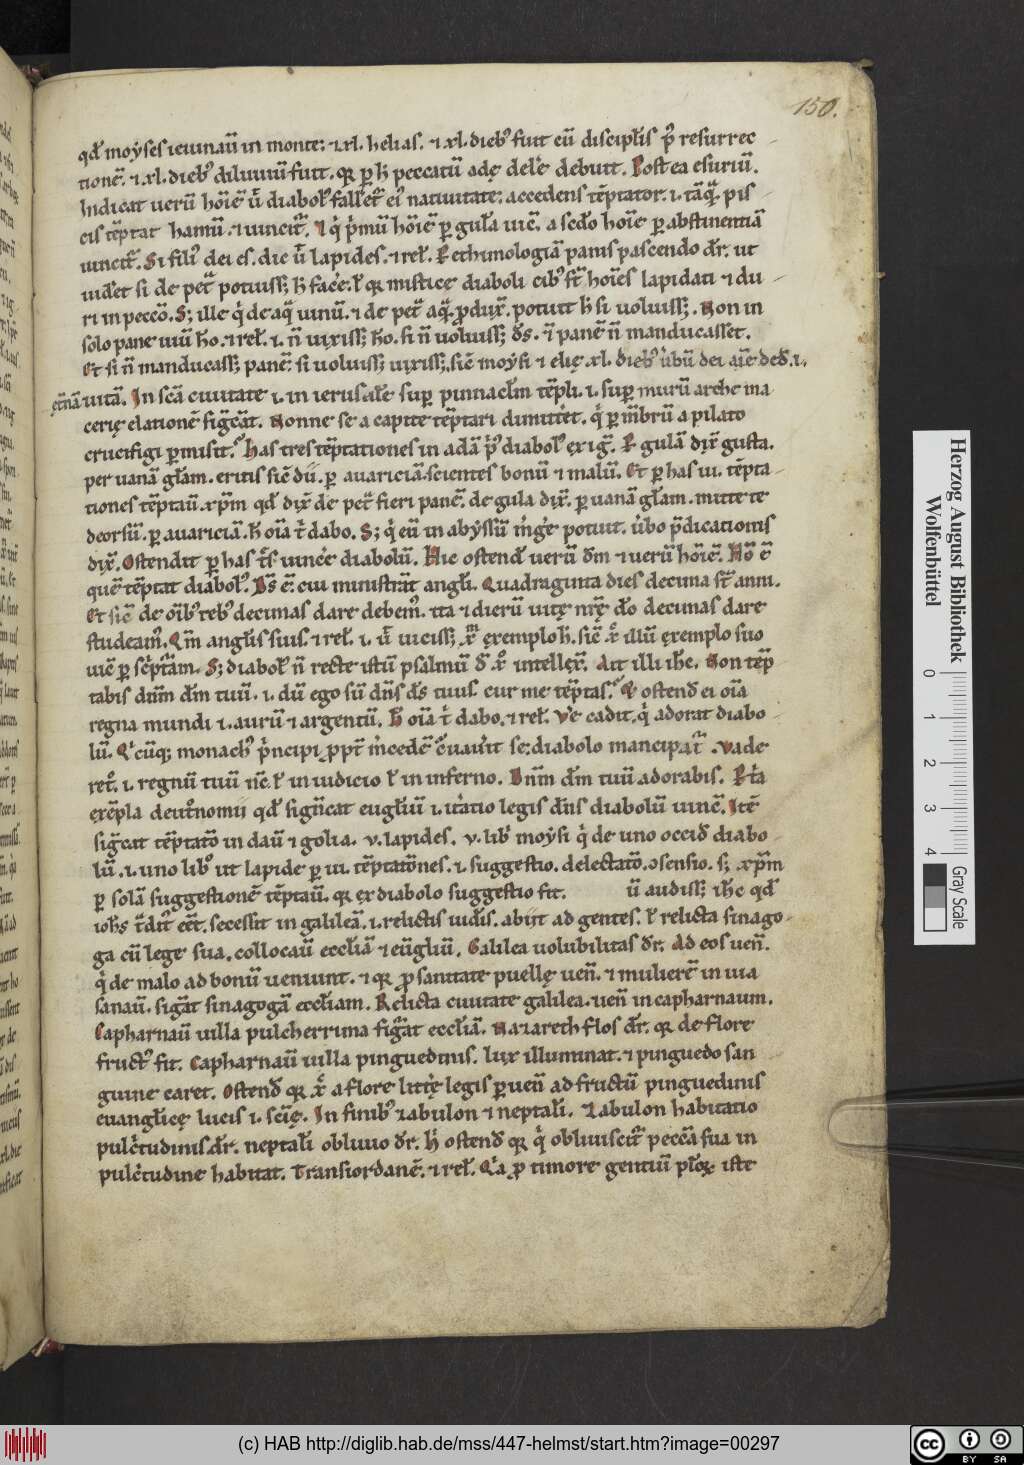 150.
qd̄ moẏses ieiunaū in monte; ⁊ .xl. helias. ⁊ .xl. dieb; fuit cū discipl̄is p̄ resurrec
tionē. ⁊ .xl. dieb; diluuiū fuit. qr ꝑ h̄ peccatū adę delēr debuit. Postea esuriū.
Indicat uerū hōiē ū diabol; fallēt ei; natiuitate; accedens tēptator. i. tāq̄ pis
cis tēptat hamū. ⁊ uincit̄. I q̇ p̄mū hōiē ꝑ gulā uic̄. a scd̄o hoīe ꝑ abstinentiā
uincit̄. Si fili; dei es. dic ū lapides. ⁊ rel̄. Ꝛethimologiā panis pascendo dr̄. ut
uidet si de pet̄ potuiss; h̄ facēr. l̄ qr mistice diaboli cib; st̄ hoīes lapidati ⁊ du
ri in peccō. S; ille q̇ de aq̄ uinū. ⁊ de pet̄ aq̄ ꝓdux̄. potuit h̄ si uoluiss;. Non in
solo pane uiū hō. ⁊ rel̄. i. n̄ uixiss; hō. si n̄ uoluiss; ds̄. ⁊ panē n̄ manducasset.
Et si n̄ manducass; panē; si uoluiss; uixiss; sic̄ moẏsi ⁊ elię .xl. dieb; ūbū dei aīe ded̄. i.
et̄nā uitā. In scā ciuitate i. in ierusal̄e suꝑ pinnacl̄m tēpli. i. suꝑ murū arche ma
cerię elationē fiḡcāt. Nonne se a capite tēptari dimittēt. q̇ ꝑ mb̄rū a pilato
crucifigi ꝑmisit. Has tres tēptationes in adā p̄ diabol; exiḡ. Ꝛ gulā dix̄ gusta.
per uanā gl̄am. eritis sic̄ dii. ꝑ auariciā. scientes bonū ⁊ malū. Et ꝑ has iii. tēpta
tiones tēptaū. xp̄m qd̄ dix̄ de pet̄ fieri panē. de gula dix̄. ꝑ uanā gl̄am. mitte te
deorsū. ꝑ auariciā. h̄ oīa t̄ dabo. S; q̇ eū in abẏssū mḡēr potuit. ūbo p̄dicationis
dix̄. Ostendit ꝑ has t̄s uincēr diabolū. Hic ostend̄ uerū dm̄ ⁊ uerū hōiē. Hō ē
quē tēptat diabol;. Ds̄ ē. cui ministrāt angl̄i. Quadraginta dies decima st̄ anni.
Et sic̄ de oīb; reb; decimas dare debem;. ita ⁊ dierū uitę nr̄ę dō decimas dare
studeam;. Qm̄ angl̄is suis. ⁊ rel̄. i. ū uiciss; xp̄c exemplo h̄. sic̄ xp̄c illū exemplo suo
uic̄ ꝑ sc̄pt̄am. S; diabol; n̄ recte istū psalmū d̄ xp̄o intellex̄. Ait illi ih̄c. Non tēp
tabis dn̄m dm̄ tuū. i. dū ego sū dn̄s ds̄ tuus. cur me tēptas. Ꝛ ostend̄ ei oīa
regna mundi i. aurū ⁊ argentū. H̄ oīa t̄ dabo. ⁊ rel̄. Vē cadit. q̇ adorat diabo
lū. Q̇cūq; monach; p̄ncipi ꝓpt̄ m̄cedē euaūit se; diabolo mancipat̄. Vade
ret°. i. regnū tuū n̄ē l̄ in iudicio l̄ in inferno. Dn̄m dm̄ tuū adorabis. Ꝛt̄a
exēpla deut̄nomii qd̄ sign̄cat eugl̄iū i. it̄atio legis dn̄s diabolū uinc̄. Itē
siḡcat tēptatō in daū ⁊ golia. v. lapides. v. lib̄ moẏsi q̇ de uno occid̄ diabo
lū. i. uno lib̄o ut lapide ꝑ iii. tēptatōnes. i. suggestio. delectatō. ɔsensio. s; xp̄m
ꝑ solā suggestionē tēptaū. qr ex diabolo suggestio fit. ū audiss; ih̄c qd̄
ioh̄s t̄dit; eēt. secessit in galileā. i. relictis iudīs. abiit ad gentes. l̄ relicta sinago
ga cū lege sua. collocaū eccl̄iā ⁊ eūgliū. Galilea uolubilitas dr̄. Ad eos uen̄.
q̇ de malo ad bonū ueniunt. ⁊ qr ꝓ sanitate puellę uen̄. ⁊ mulierē in uia
sanaū. sigāt sinagogā eccl̄iam. Relicta ciuitate galilea. uen̄ in capharnaum.
Capharnaū uilla pulcherrima fiḡat eccl̄iā. Nazareth flos dr̄. qr de flore
fruct; fit. Capharnaū uilla pinguedinis. lux illuminat. ⁊ pinguedo san
guine caret. Ostend̄ qr xp̄c a flore littę̄ legis ꝑuen̄ ad fructū pinguedinis
euangl̄icę lucis i. scīę. In finib; zabulon ⁊ neptali. Zabulon habitatio
pulc̄tudinis. dr̄. neptali obliuio dr̄. h̄ ostend̄ qr q̇ obliuiscit̄ peccā sua in
pulc̄tudine habitat. Transiordanē. ⁊ rel̄. Q̇a ꝓ timore gentiū pl̄oꝝ iste
Herzog August Bibliothek
Wolfenbüttel
0 1 2 3 4
Gray Scale
(c) HAB http://diglib.hab.de/mss/447-helmst/start.htm?image=00297
cc BY SA